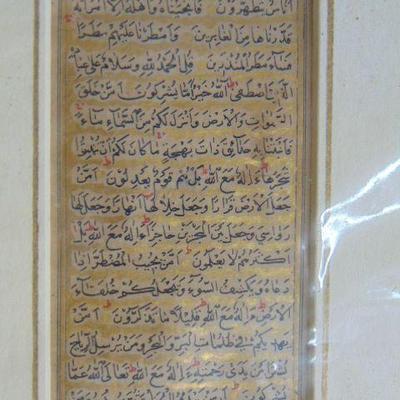 أناس يتطهرون فأنجيناه وأهله إلا امرأته
قدرناها من الغابرين وأمطرنا عليهم مطرا
فساء مطر المنذرين قل الحمد لله وسلام على عباده
الذين اصطفى الله خير أما يشركون أمن خلق
السموات والأرض وأنزل لكم من السماء ماء
فأنبتنا به حدائق ذات بهجة ما كان لكم أن تنبتوا
شجرها ءإله مع الله بل هم قوم يعدلون أمن
جعل الأرض قرارا وجعل خلالها أنهارا وجعل لها
رواسي وجعل بين البحرين حاجزا ءإله مع الله بل
أكثرهم لا يعلمون أمن يجيب المضطر إذا
دعاه ويكشف السوء ويجعلكم خلفاء
الأرض ءإله مع الله قليلا ما تذكرون أمن
يهديكم في ظلمات البر والبحر ومن يرسل الرياح
بشرا بين يدي رحمته ءإله مع الله تعالى الله عما
يشركون أمن